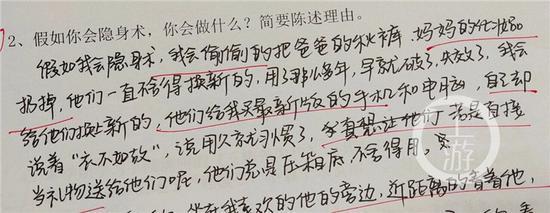 2、假如你会隐身术，你会做什么？简要陈述理由。
假如我会隐身术，我会偷偷的把爸爸的秋裤 妈妈的化妆品
扔掉，他们一直舍得换新的，用了那么多年，早就破了，失效了，我会
给他们换上新的，他们给我买最新版的手机和电脑，自己却
说着“衣不如故”，说用久就习惯了，我真想让他们 总是直接
当礼物送给他们呢，他们总是压箱底，不舍得用。
坐在我喜欢的他的旁边，近距离的看着他，
上游